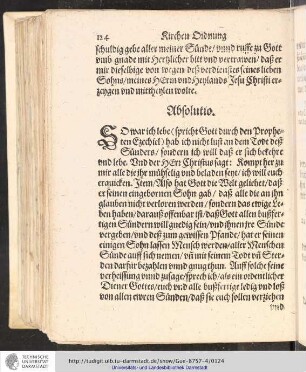 124 Kirchen Ordnung
schuldig gebe aller meiner Sünde/ vnnd ruffe zu Gott
vmb gnade mit Hertzlicher bitt vnd vertrawen/ daß er
mir dieselbige von wegen deß verdienstes seines lieben
Sohns/ meines HErrn vnd Heylands Jesu Christi er-
zeygen vnd mittheylen wolte.
Absolutio.
SO war ich lebe (spricht Gott durch den Prophe-
ten Ezechiel) hab ich nicht lust an dem Todt deß
Sünders/ sondern ich will daß er sich bekehre
vnd lebe. Vnd der HErr Christus sagt: Kompt her zu
mir alle die jhr mühselig vnd beladen seyt/ ich will euch
erquicken. Item/ Also hat Gott die Welt geliebet/ daß
er seinen eingebornen Sohn gab/ daß alle die an jhn
glauben nicht verloren werden/ sondern das ewige Le-
ben haben/ darauß offenbar ist/ daß Gott allen bußfer-
tigen Sündern will gnedig seyn/ vnd jhnen jre Sünde
vergeben/ vnd deß zum gewissen Pfande/ hat er seinen
einigen Sohn lassen Mensch werden/ aller Menschen
Sünde auff sich nemen/ vñ mit seinem Todt vñ Ster-
ben darfür bezahlen vnnd gnug thun. Auff solche seine
verheissung vnnd zusage/ sprech ich/ als ein ordentlicher
Diener Gottes/ euch vnd alle bußfertige ledig vnd loß
von allen ewren Sünden/ daß sie euch sollen verziehen
vnd
http://tudigit.ulb.tu-darmstadt.de/show/Gue-8757-4/0124
Universitäts- und Landesbibliothek Darmstadt